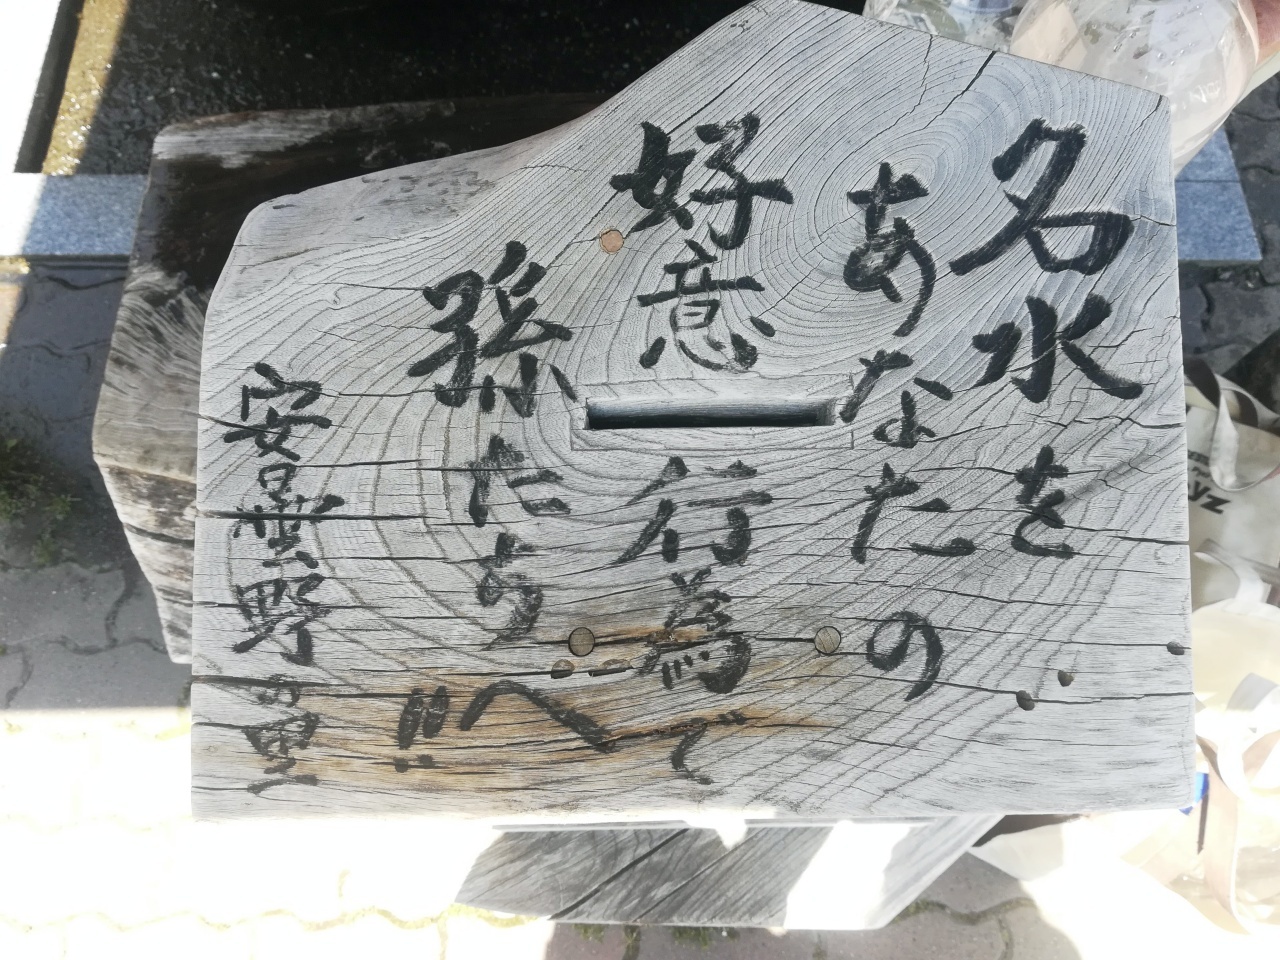 名水を
あなたの
好意行為で
孫たちへ!!
安曇野の里